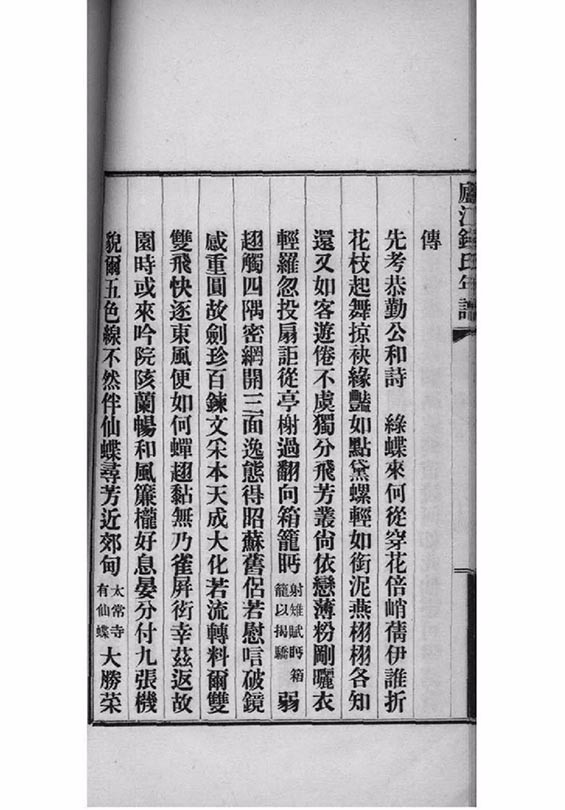 廬江錢氏年譜
傳
先考恭勤公和詩　綠蝶來何從穿花倍峭蒨伊誰折
花枝起舞掠袂緣豔如點黛螺輕如銜泥燕栩栩各知
還又如客遊倦不虞獨分飛芳叢尙依戀薄粉剛曬衣
輕羅忽投扇詎從亭榭過翻向箱籠眄射雉賦眄箱籠以揭驕弱
翅觸四隅密網開三面逸態得昭蘇舊侶若慰唁破鏡
感重圓故劍珍百鍊文采本天成大化若流轉料爾雙
雙飛快逐東風便如何蟬翅黏無乃雀屏衒幸茲返故
園時或來吟院陔蘭暢和風簾櫳好息晏分付九張機
貌爾五色線不然伴仙蝶尋芳近郊甸太常寺有仙蝶大勝榮